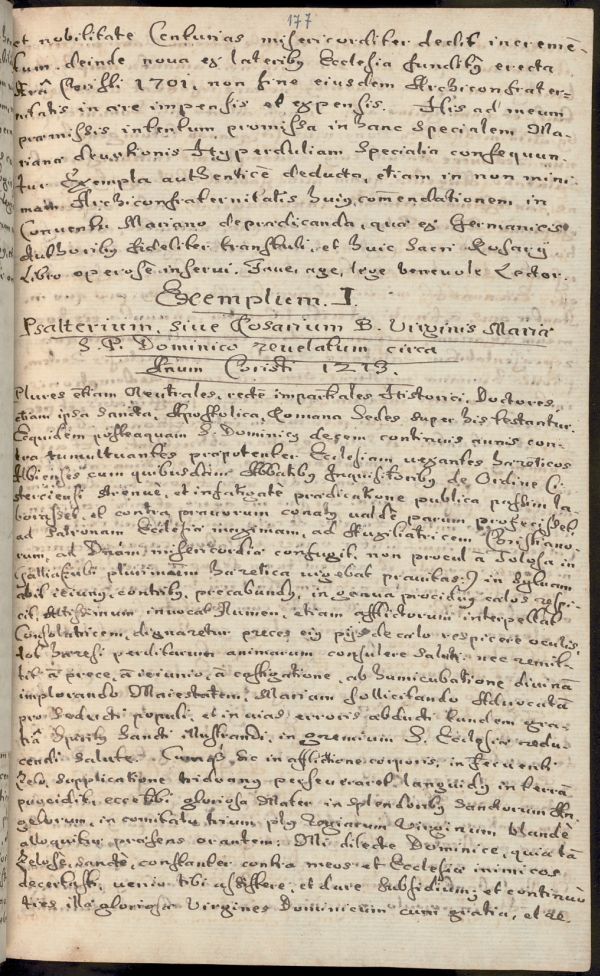 177
et nobilitate Centurias misericorditer dedit incremē-
tum. deinde nova ex lateribq Ecclesia funditq erecta
Aña Christi 1701, non sine eiusdem Archiconfrater-
nitatis in aere impensis et expensis. His ad meum
praemissis intentum promissa in hanc specialem Ma-
rianae devotionis Hyperduliam Specialia consequun-
tur Exempla authenticè deducta, etiam in non mini-
mam Archiconfraternitatis huiq comendationem in
Conventu Mariano depraedicanda, quae ex Germanicis
Authoribq fideliter transtuli, et huic Sacri Rosarÿ
Libro operosè inserui. Fave, age, lege benevole Lector.
Exemplum. I.
Psalterium, sive Rosarium B. Virginis Maria
S. P. Dominico revelatum circa
Añum Christi 1213.
Plures etiam Neutrales, rectè impartiales Historici, Doctores,
etiam ipsa Sancta, Apostolica, Romana Sedes super his testantur.
Eequidem posteaquam S. Dominicq decem continuis annis con-
tra tumultuantes propotenter Ecclesiam vexantes haereticos
Albienses cum quibusdam Abbatibq Inquisitoribq de Ordine Ci-
sterciensi strenuè, et infatigatè praedicatione publica passim la-
borasset, et contra pravorum conatq valde parum profecisset
ad Patronam Ecclesiae maximam, ad Auxiliatricem Christiano-
rum, ad Dnam misericordiae confugit, non procul à Tolosa in
Gallia (ubi plurimum haeretica vigebat pravitas) in Sylvam
abit ieiunq, contritq, precabundq, in genua procidens caelos respi-
cit, Altissimum invocat Numen, etiam afflictorum interpellat
Consolatricem, dignaretur preces eiq pÿs de caelo respicere oculis,
tot haeresi perditarum animarum consulere saluti, nec remit-
tit à prece, à ieiunio, à castigatione, ab humicubatione divinā
implorando Maiestatem, Mariam sollicitando Advocatā
pro seducti populi, et in vias erroris abducti tandem gra-
tiâ Spiritq Sancti illustrandi, in gremium S. Ecclesiae redu-
cendi salute. Cumq sic in afflictione corporis, in ferventi
zelo, supplicatione triduanq perseveraret languidq in terrā
procidit, ecce tibi gloriosa Mater in splendoribq Sanctorum An-
gelorum, in comitatu trium plq Regiarum Virginum blandè
alloquitur praesens orantem: Mi dilecte Dominice, quia tā
zelosè, sanctè, constanter contra meos et Ecclesiae inimicos
decertasti, venio tibi assistere, et dare subsidium, et continuò
ties illae gloriosae Virgines Dominicum cum gratia, et de-